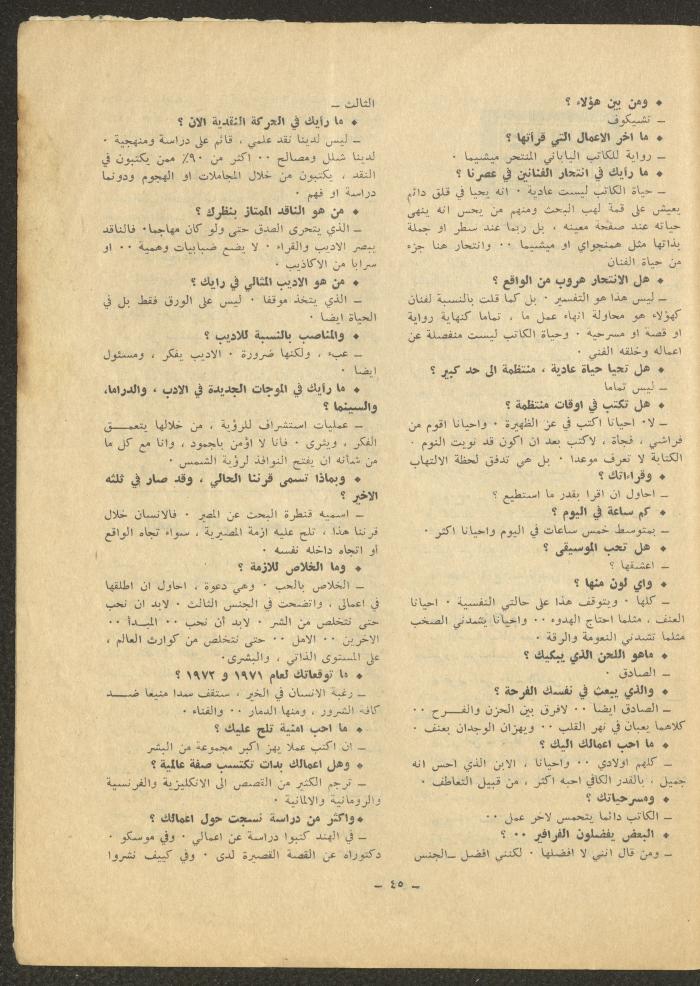 ● ومن بين هؤلاء ؟
ــ تشيكوف
● ما اخر الاعمال التي قرأتها ؟
ــ رواية للكاتب الياباني المنتحر ميشيما ·
● ما رأيك في انتحار الفنانين في عصرنا ؟
ــ حياة الكاتب ليست عادية · انه يحيا في قلق دائم
يعيش على قمة لهب البحث ومنهم من يحس انه ينهى
حياته عند صفحة معينه ، بل ربما عند سطر او جملة
بذاتها مثل همنجواي او ميشيما ·· وانتحار هنا جزء
من حياة الفنان
● هل الانتحار هروب من الواقع ؟
ــ ليس هذا هو التفسير · بل كما قلت بالنسبة لفنان
كهؤلاء هو محاولة انهاء عمل ما ، تماما كنهاية رواية
او قصة او مسرحية · وحياة الكاتب ليست منفصلة عن
اعماله وخلقه الفني ·
● هل تحيا حياة عادية ، منتظمة الى حد كبير ؟
ــ ليس تماما
● هل تكتب في اوقات منتظمة ؟
ــ لا· احيانا اكتب في عز الظهيرة · واحيانا اقوم من
فراشي ، فجأة ، لاكتب بعد ان اكون قد نويت النوم ·
الكتابة لا تعرف موعدا · بل هي تدفق لحظة الالتهاب
● وقراءاتك ؟
ــ احاول ان اقرا بقدر ما استطيع ؟
● كم ساعة في اليوم ؟
ــ بمتوسط خمس ساعات في اليوم واحيانا اكثر ·
● هل تحب الموسيقى ؟
ــ اعشقها ؟
● واي لون منها ؟
ــ كلها · ويتوقف هذا على حالتي النفسية · احيانا
العنف ، مثلما احتاج الهدوء ·· واحيانا يشدني الصخب
مثلما تشدني النعومة والرقة ·
● ماهو اللحن الذي يبكيك ؟
ــ الصادق ·
● والذي يبعث في نفسك الفرحة ؟
ــ الصادق ايضا ·· لافرق بين الحزن والفـــرح ··
كلاهما يعبان في نهر القلب ·· ويهزان الوجدان بعنف ·
● ما احب اعمالك اليك ؟
ــ كلهم اولادي ·· واحيانا ، الابن الذي احس انه
جميل ، بالقدر الكافي احبه اكثر ، من قبيل التعاطف ·
● ومسرحياتك ؟
ــ الكاتب دائما يتحمس لاخر عمل ··
● البعض يفضلون الفرافير ·· ؟
ــ ومن قال انني لا افضلها · لكنني افضل ــالجنس
الثالث ــ
● ما رأيك في الحركة النقدية الان ؟
ــ ليس لدينا نقد علمي ، قائم على دراسة ومنهجية ·
لدينا شلل ومصالح ·· اكثر من ٩٠٪ ممن يكتبون في
النقد ، يكتبون من خلال المجاملات او الهجوم ودونما
دراسة او فهم ·
● من هو الناقد الممتاز بنظرك ؟
ــ الذي يتحرى الصدق حتى ولو كان مهاجما· فالناقد
يبصر الاديب والقراء · لا يضع ضبابيات وهمية ·· او
سرابا من الاكاذيب ·
● من هو الاديب المثالي في رايك ؟
ــ الذي يتخذ موقفا · ليس على الورق فقط بل في
الحياة ايضا ·
● والمناصب بالنسبة للاديب ؟
ــ عبء ، ولكنها ضرورة · الاديب يفكر ، ومسئول
ايضا ·
● ما رأيك في الموجات الجديدة في الادب ، والدراما،
والسينما ؟
ــ عمليات استشراف للرؤية ، من خلالها يتعمـــق
الفكر ، ويثرى · فانا لا اؤمن باجمود ، وانا مع كل ما
من شأنه ان يفتح النوافذ لرؤية الشمس ·
● وبماذا تسمى قرننا الحالي ، وقد صار في ثلثه
الاخير ؟
ــ اسميه قنطرة البحث عن المصير · فالانسان خلال
قرننا هذا ، تلح عليه ازمة المصيرية ، سواء تجاه الواقع
او اتجاه داخله نفسه ·
● وما الخلاص للازمة ؟
ــ الخلاص بالحب · وهي دعوة ، احاول ان اطلقها
في اعمالي ، واتضحت في الجنس الثالث · لابد ان نحب
حتى نتخلص من الشر · لابد ان نحب ·· المبـدأ ··
الاخرين ·· الامل ·· حتى نتخلص من كوارث العالم ،
على المستوى الذاتي ، والبشرى·
● ما توقعاتك لعام ١٩٧١ و ١٩٧٢ ؟
ــ رغبة الانسان في الخير ، ستقف سدا منيعا ضـــد
كافة الشرور ، ومنها الدمار ·· والفناء ·
● ما احب امنية تلح عليك ؟
ــ ان اكتب عملا يهز اكبر مجموعة من البشر
● وهل اعمالك بدات تكتسب صفة عالمية ؟
ــ ترجم الكثير من القصص الى الانكليزية والفرنسية
والرومانية والالمانية ·
● واكثر من دراسة نسجت حول اعمالك ؟
ــ في الهند كتبوا دراسة عن اعمالي · وفي موسكو ·
دكتوراه عن القصة القصيرة لدى · وفي كييف نشروا
ــ ٤٥ ــ